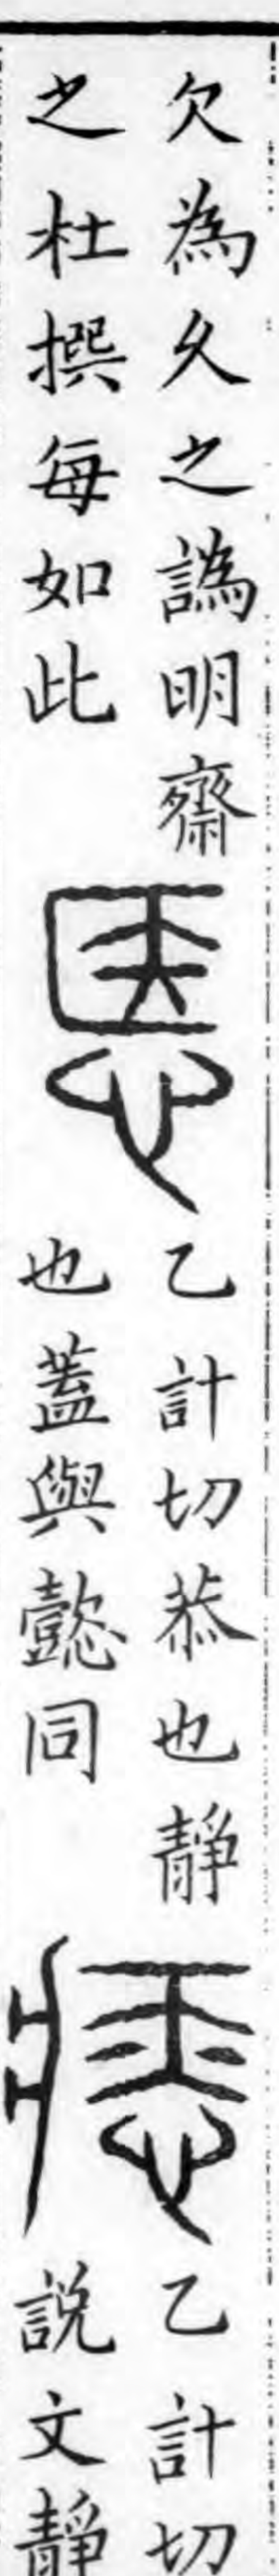 欠為久之譌明齋
之杜撰每如此
悘
乙計切恭也靜
也蓋與懿同
瘱
乙計切
説文靜